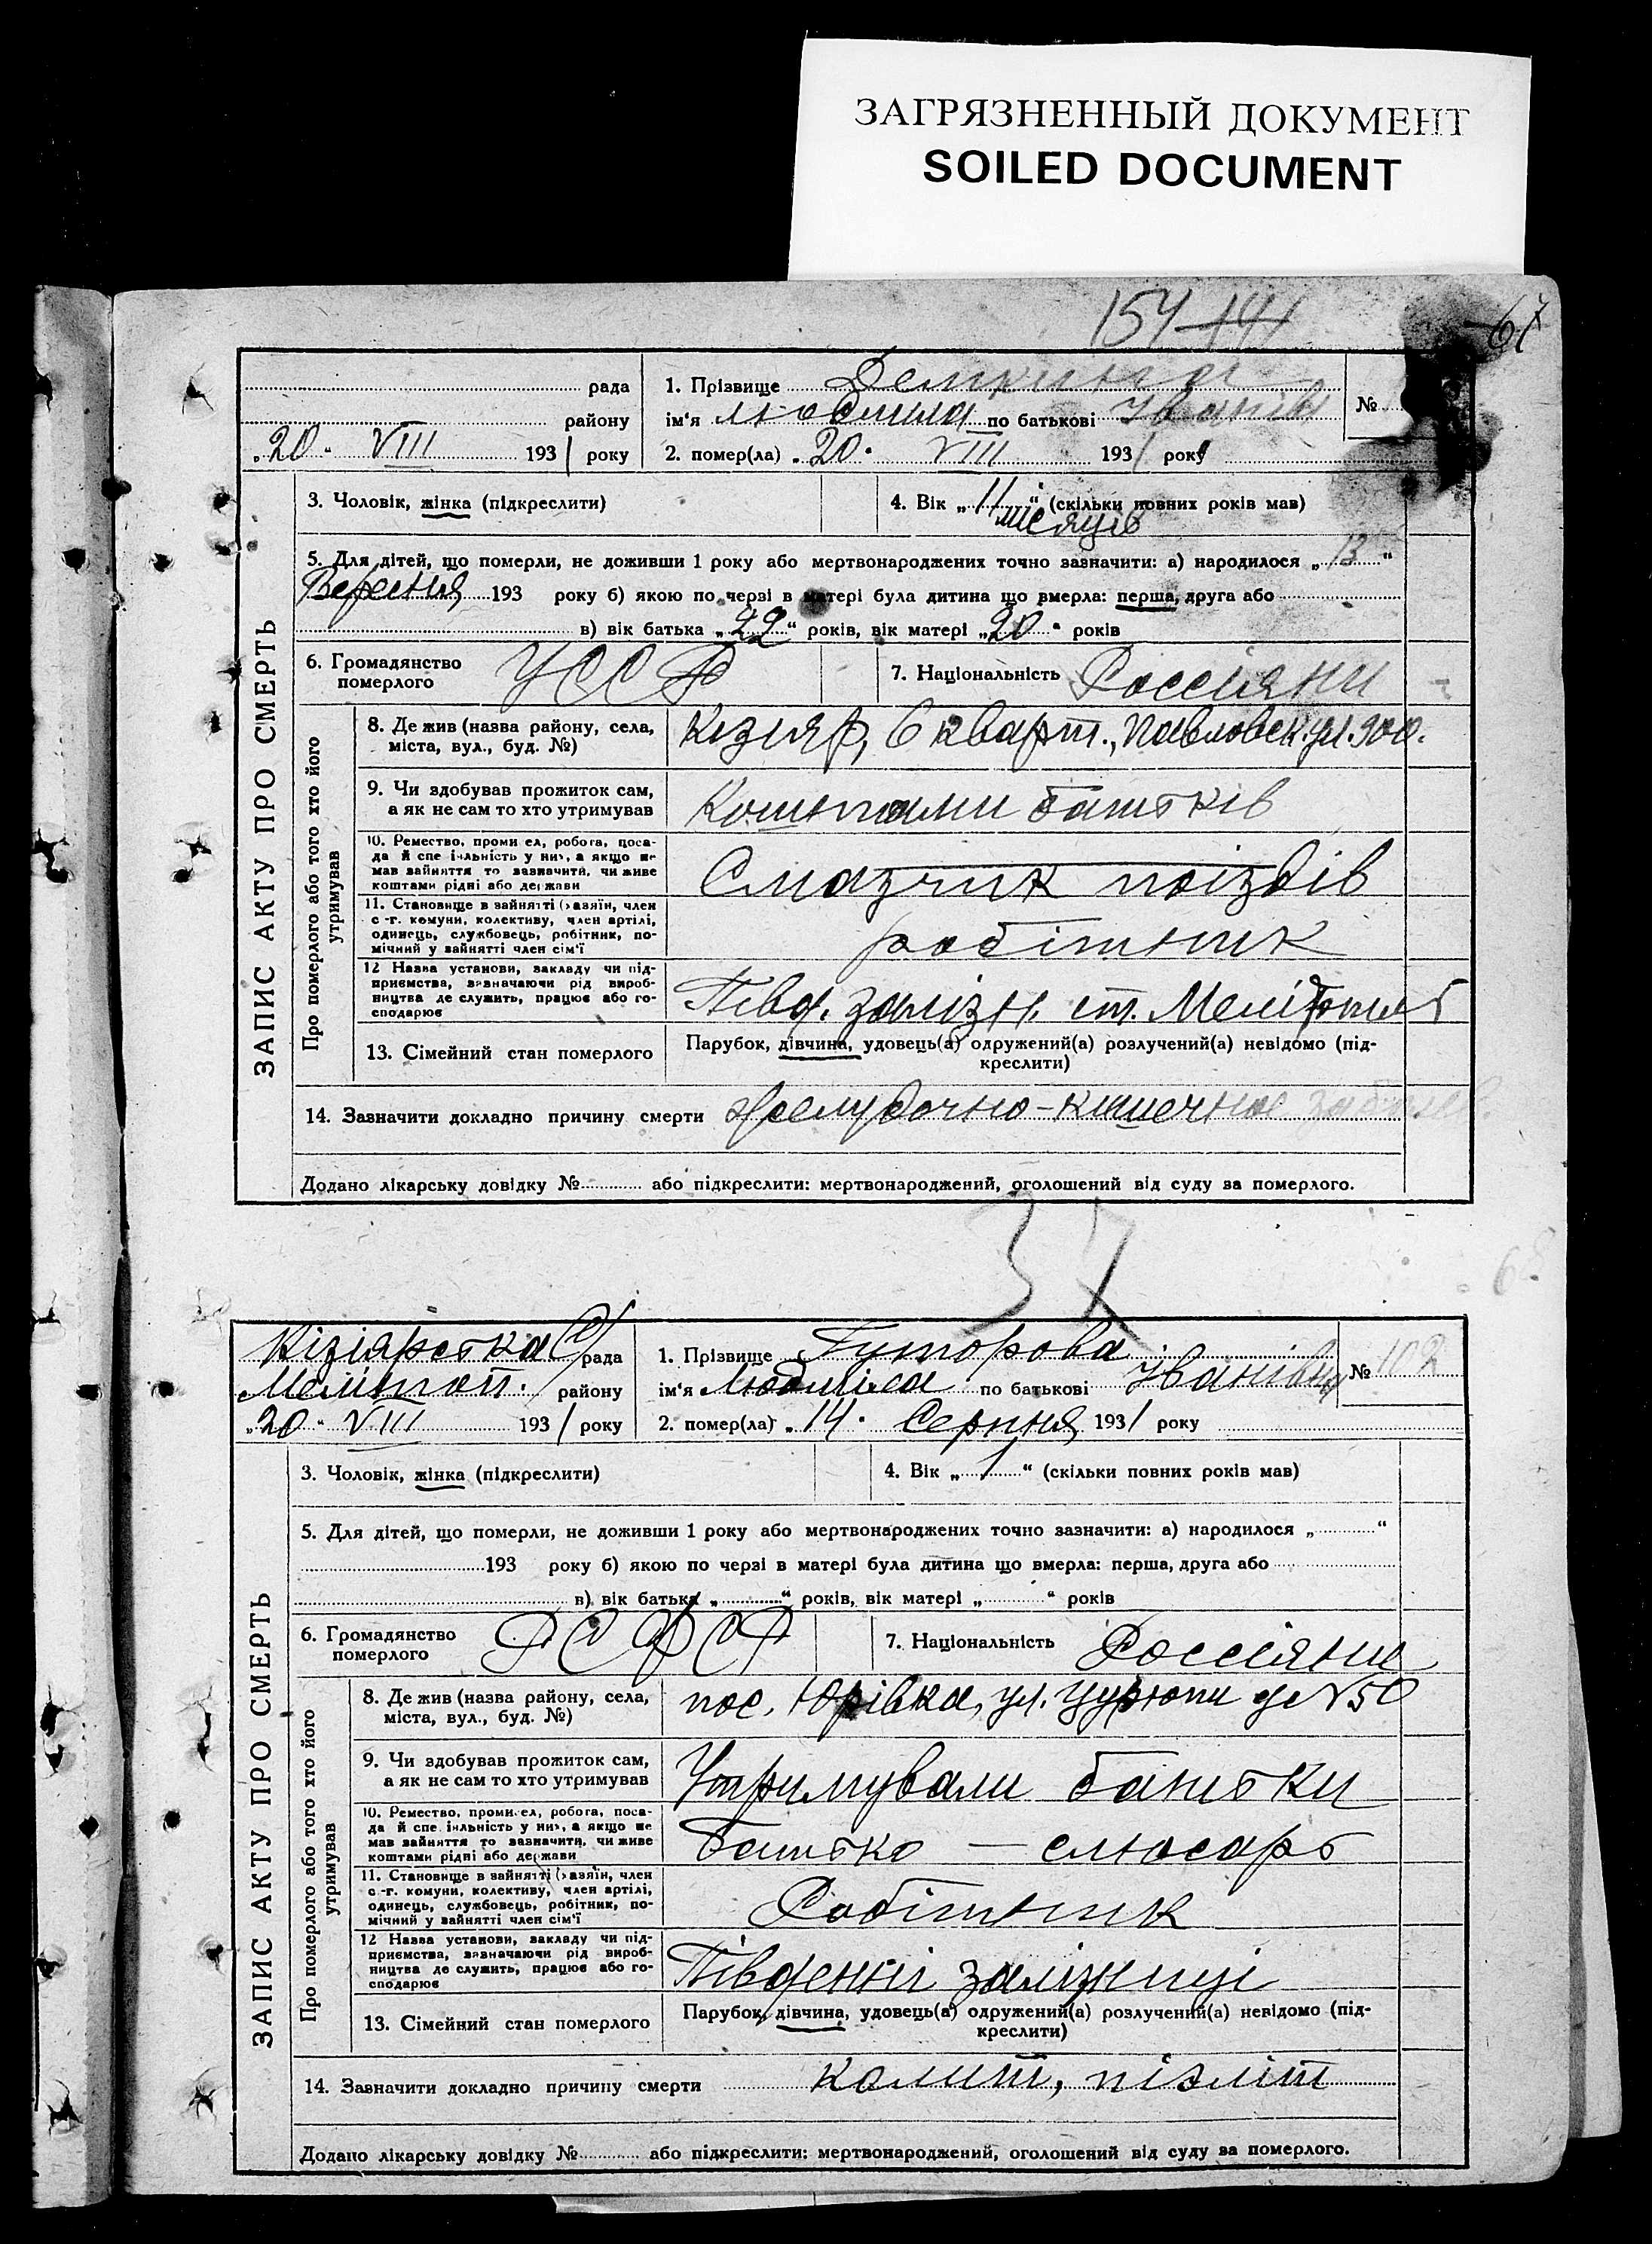 ЗАГРЯЗНЕННЫЙ ДОКУМЕНТ
SOILED DOCUMENT
154 141
67
рада
району
„20“ VIII 1931 року
1. Прізвище Демкина
ім'я Людмила по батькові Іванів
№
2. помер(ла) „20“ VIII 1931 року
ЗАПИС АКТУ ПРО СМЕРТЬ
3. Чоловік, жінка (підкреслити)
4. Вік „11“ (скільки повних років мав)
місяців
5. Для дітей, що померли, не доживши 1 року або мертвонароджених точно зазначити: а) народилося „13“
Вересня 193 року б) якою по черзі в матері була дитина що вмерла: перша, друга або
в) вік батька „22“ років, вік матері „20“ років
6. Громадянство померлого УССР
7. Національність Россіяни
Про померлого або того хто його утримував
8. Де жив (назва району, села, міста, вул., буд. №) Кізіяр, 6 кварт., Павловск. ул. 900.
9. Чи здобував прожиток сам, а як не сам то хто утримував Коштами батьків
10. Ремество, промисел, робота, посада й спеціяльність у них, а якщо не мав зайняття то зазначити, чи живе коштами рідні або держави Смазчик поїздів
11. Становище в зайнятті (хазяїн, член с.-г. комуни, колективу, член артілі, одинець, службовець, робітник, помічний у зайнятті член сім'ї робітник
12 Назва установи, закладу чи підприємства, зазначаючи рід виробництва де служить, працює або господарює Півд. залізн. ст. Мелітополь
13. Сімейний стан померлого Парубок, дівчина, удовець(а) одружений(а) розлучений(а) невідомо (підкреслити)
14. Зазначити докладно причину смерти Желудочно-кишечное заболев.
Додано лікарську довідку № або підкреслити: мертвонароджений, оголошений від суду за померлого.
37
Кізіярська С/рада
Мелітоп. району
„20“ VIII 1931 року
1. Прізвище Гуторова
ім'я Людміла по батькові Іванівна
№ 102
2. помер(ла) „14“ Серпня 1931 року
ЗАПИС АКТУ ПРО СМЕРТЬ
3. Чоловік, жінка (підкреслити)
4. Вік „1“ (скільки повних років мав)
5. Для дітей, що померли, не доживши 1 року або мертвонароджених точно зазначити: а) народилося „ “
193 року б) якою по черзі в матері була дитина що вмерла: перша, друга або
в) вік батька „ “ років, вік матері „ “ років
6. Громадянство померлого РСФСР
7. Національність Россіяни
Про померлого або того хто його утримував
8. Де жив (назва району, села, міста, вул., буд. №) пос. Юрівка, ул. Цурюпи д N 50
9. Чи здобував прожиток сам, а як не сам то хто утримував Утримували батьки
10. Ремество, промисел, робота, посада й спеціяльність у них, а якщо не мав зайняття то зазначити, чи живе коштами рідні або держави Батько — слюсарь
11. Становище в зайнятті (хазяїн, член с.-г. комуни, колективу, член артілі, одинець, службовець, робітник, помічний у зайнятті член сім'ї Робітник
12 Назва установи, закладу чи підприємства, зазначаючи рід виробництва де служить, працює або господарює Південні залізниці
13. Сімейний стан померлого Парубок, дівчина, удовець(а) одружений(а) розлучений(а) невідомо (підкреслити)
14. Зазначити докладно причину смерти колит, піэліт
Додано лікарську довідку № або підкреслити: мертвонароджений, оголошений від суду за померлого.